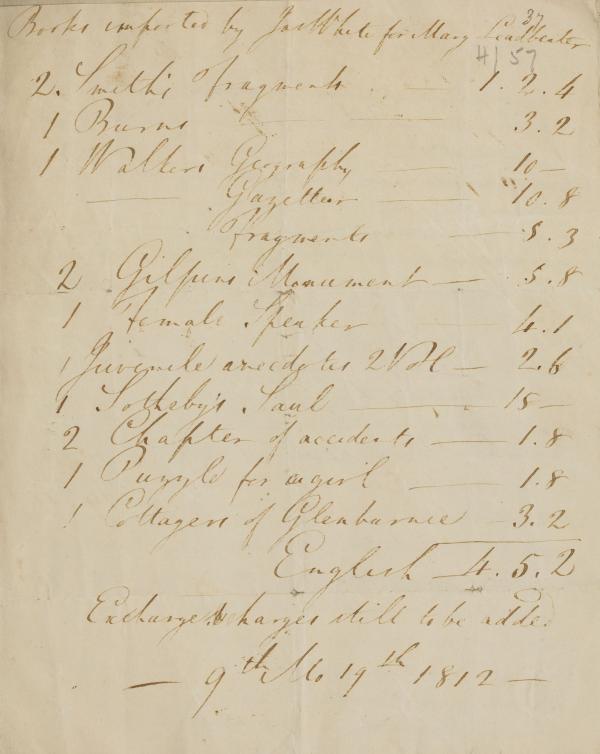 37
Books imported by Jas White for Mary Leadbeater
H/57
2. Smith's fragments — 1.2.4
1 Burns — — 3.2
1 Walkers Geography — 10 —
— Gazetteer — 10.8
fragments — 5.3
2 Gilpins Monument — 5.8
1 Female Speaker — 4.1
1 Juvenile anecdotes 2 Vol — 2.6
1 Sotheby's Saul — 18 —
2 Chapter of accidents — 1.8
1 Puzzle for a girl — 1.8
1 Cottagers of Glenburnie — 3.2
English — 4.5.2
Exchange & charges still to be added
— 9th Mo 19th 1812 —